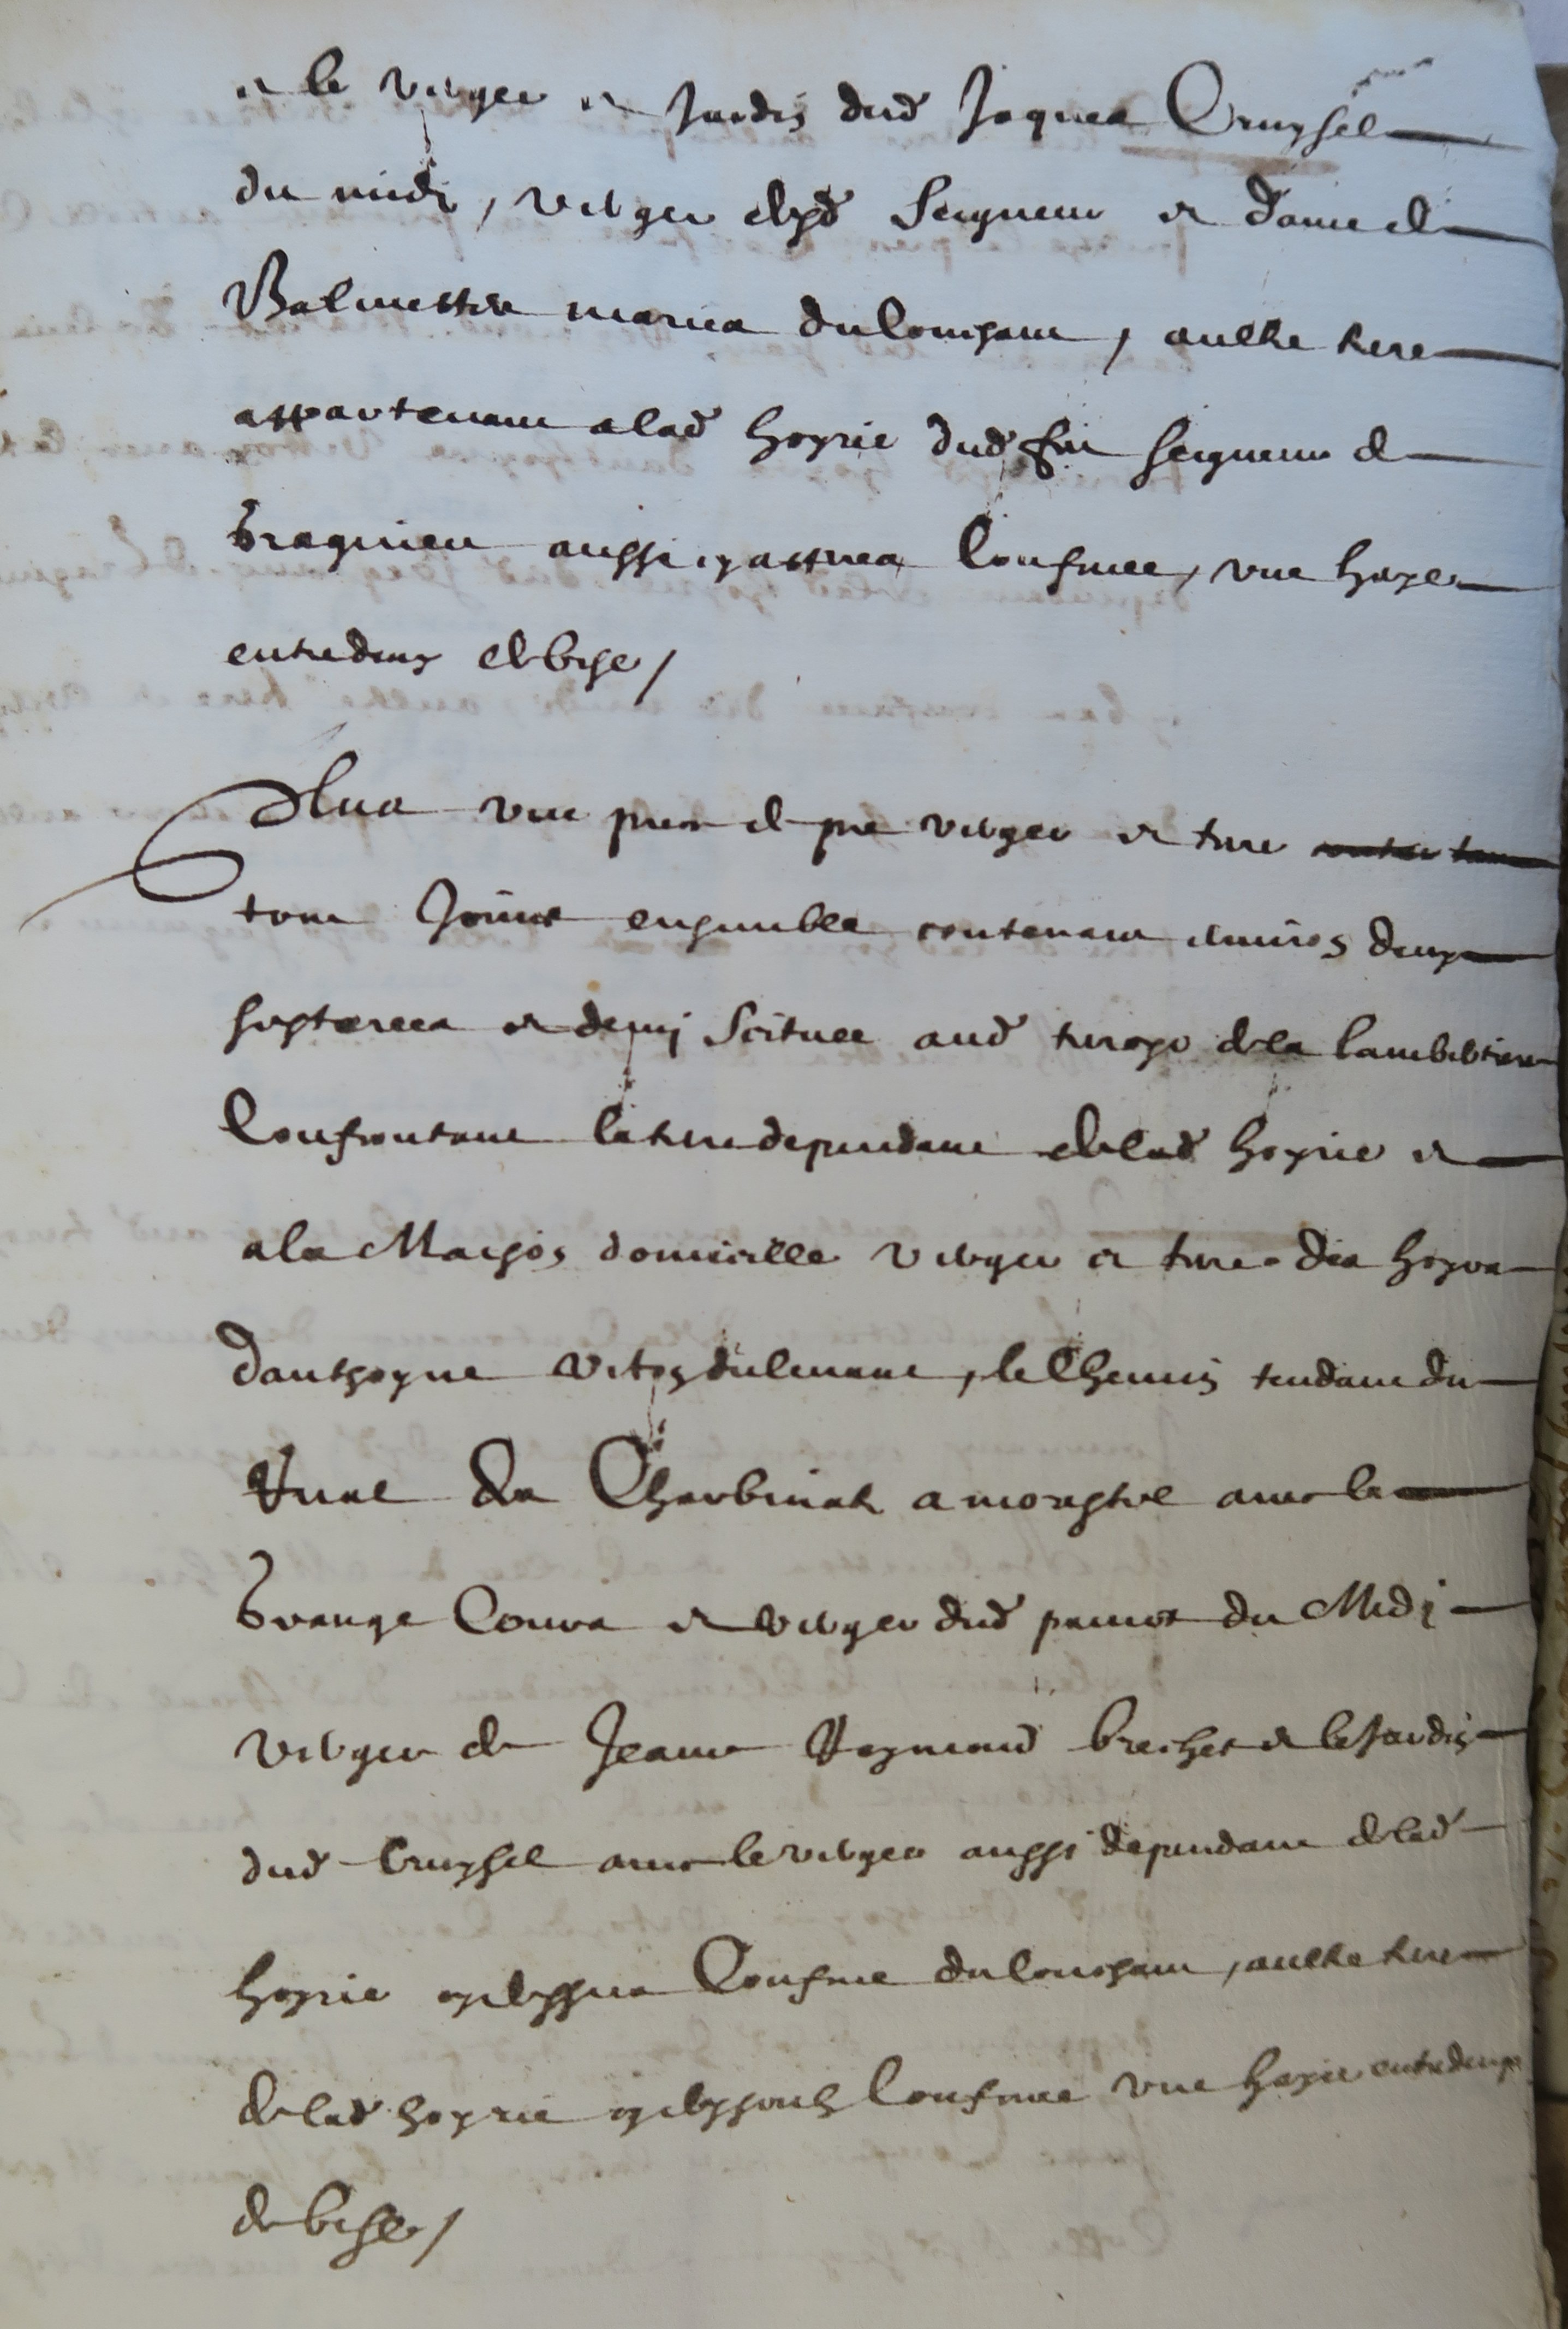 et le verger et jardin dud Jaques Cruysel
du midi, verger desd Seigneur et dame de
Valmettes mariez du couchant, aultre terre
appartenant a lad hoyrie dud feu seigneur de
Braquieu aussi cy apres confinee, une haye
entredeux de bise /
Plus une piece de pre verger et terre
tout joinct ensemble contenant environ deux
septerees et demy scituee aud terroyr de la Lambertiere
confrontant la terre dependant de lad hoyrie et
a la Maison domicille verger et terre des hoyrs
danthoyne du levant, le chemin tendant du
a morestel avec la
Grange Cours et verger dud du Midi
verger de Jeanne Reymond et le jardin
dud Cruysel avec le verger aussi dependant de lad
hoyrie cy dessus confine du couchant, aultre terre
de lad hoyrie cy dessoubz confinee une haye entredeux
de bise /